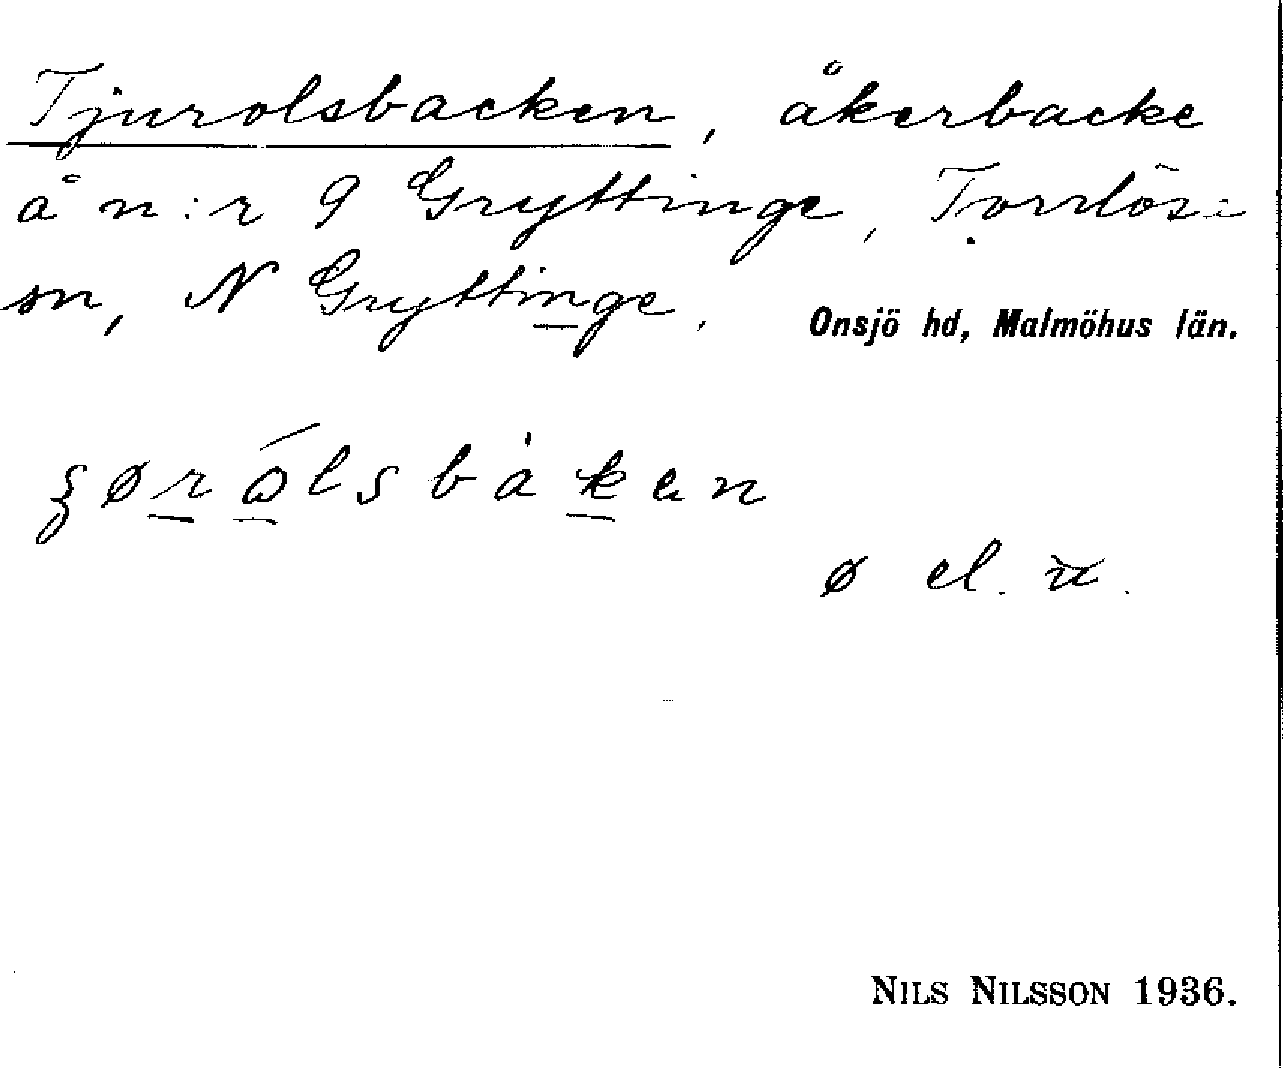 Tjurolsbacken, åkerbacke
å n:r 9 Gryttinge, Torrlös:a
sn, N Gryttinge. Onsjö hd, Malmöhus län.
ʂøròlsbàken
ø el. ü.
NILS NILSSON 1936.